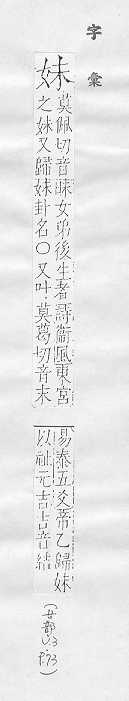 字彙
妹
莫佩切音昧女弟後生者詩衞風東宮
之妹又歸妹卦名○又叶莫葛切音末
易泰五爻帝乙歸妹
以祉元吉吉音結
(女部
P.73)